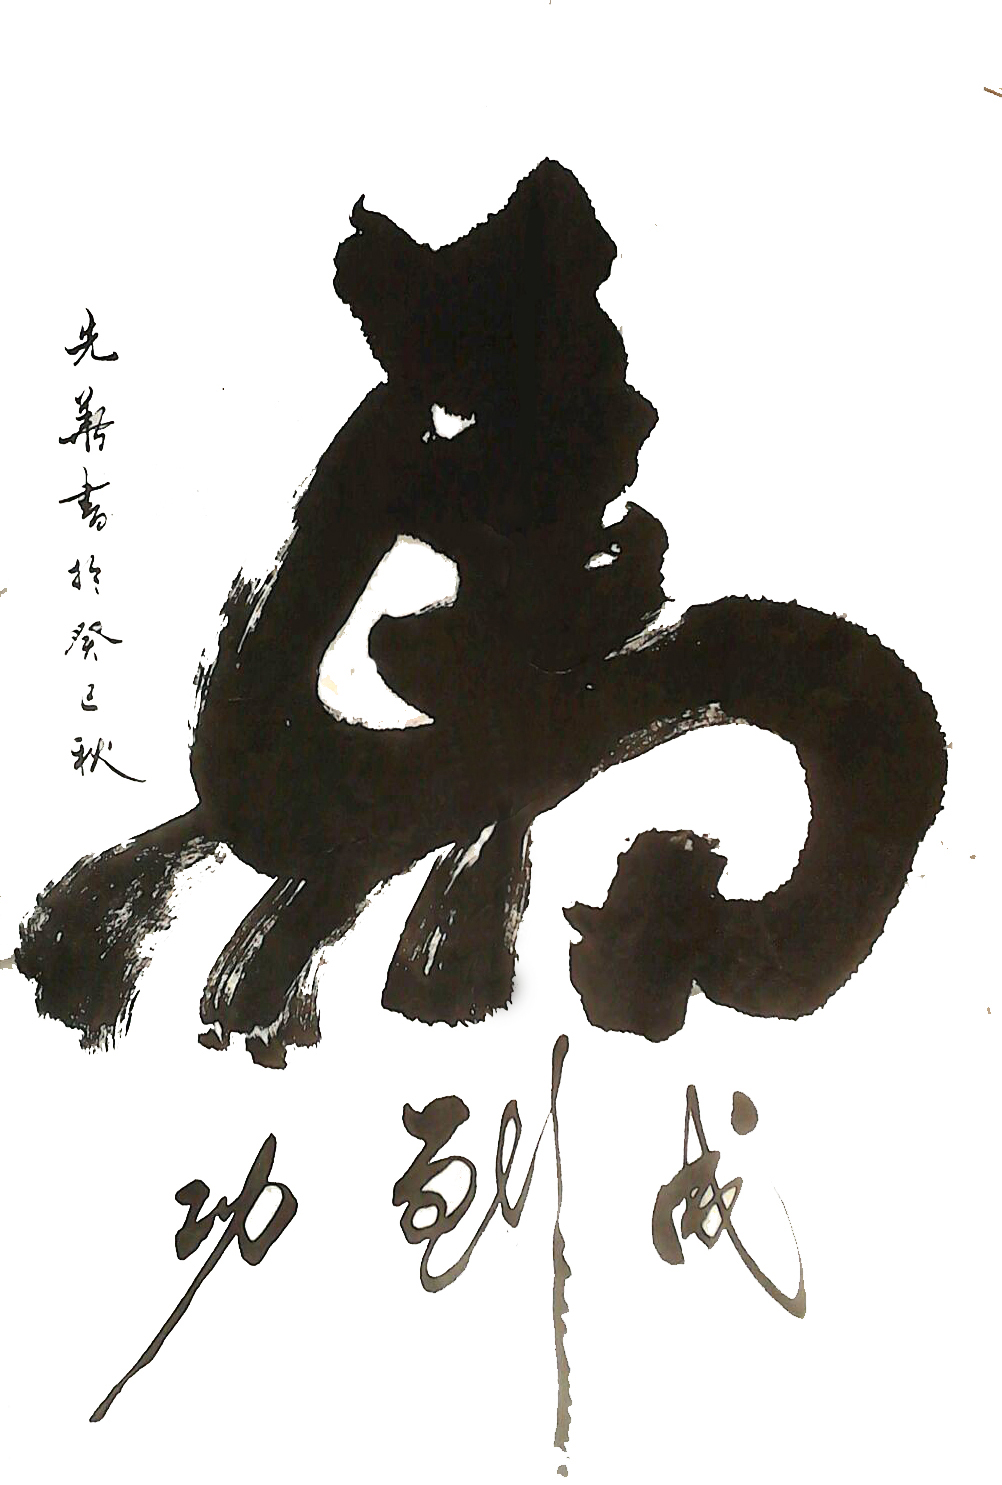 馬
到成功
先 書於癸巳秋